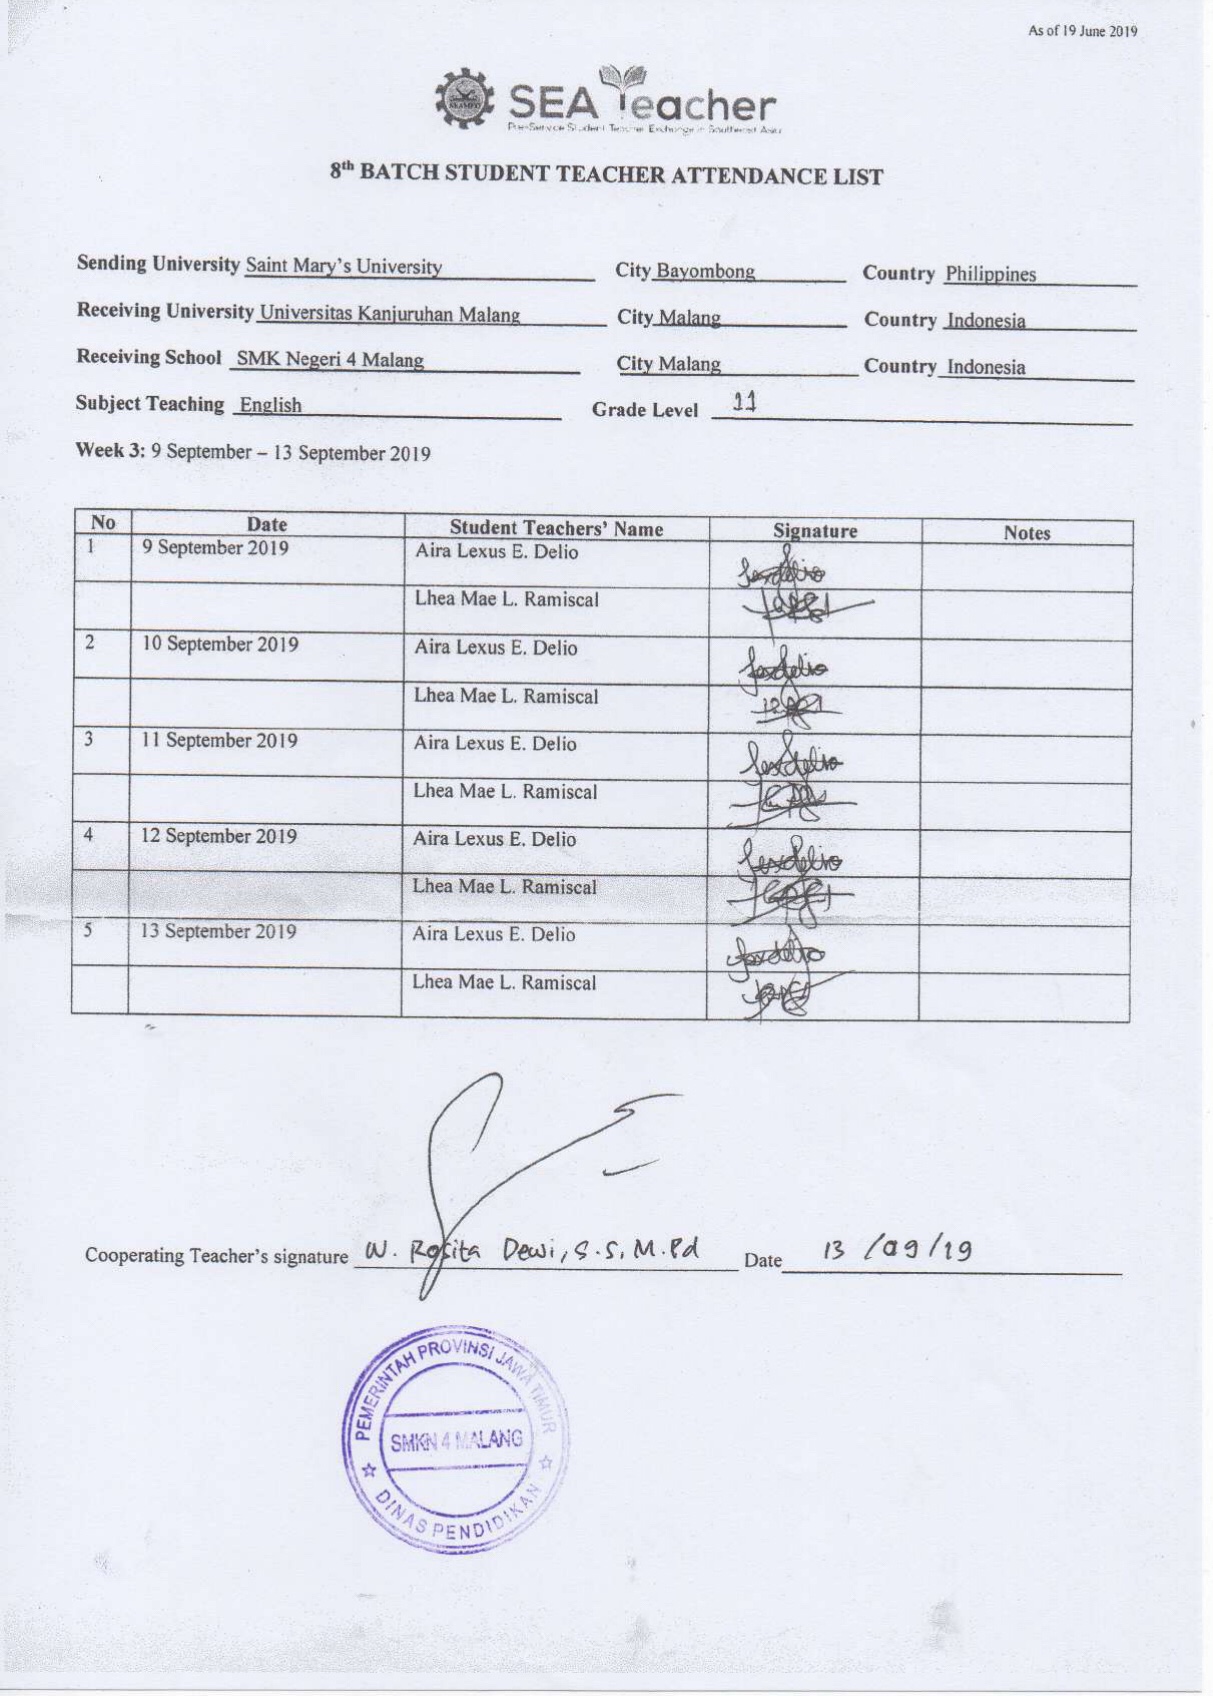 As of 19 June 2019
SEA Teacher
Pre-Service Student Teacher Exchange in Southeast Asia
8th BATCH STUDENT TEACHER ATTENDANCE LIST
Sending University Saint Mary's University City Bayombong Country Philippines
Receiving University Universitas Kanjuruhan Malang City Malang Country Indonesia
Receiving School SMK Negeri 4 Malang City Malang Country Indonesia
Subject Teaching English Grade Level 11
Week 3: 9 September – 13 September 2019
No Date Student Teachers' Name Signature Notes
1 9 September 2019 Aira Lexus E. Delio
Lhea Mae L. Ramiscal
2 10 September 2019 Aira Lexus E. Delio
Lhea Mae L. Ramiscal
3 11 September 2019 Aira Lexus E. Delio
Lhea Mae L. Ramiscal
4 12 September 2019 Aira Lexus E. Delio
Lhea Mae L. Ramiscal
5 13 September 2019 Aira Lexus E. Delio
Lhea Mae L. Ramiscal
Cooperating Teacher's signature W. Rosita Dewi, S.S, M.Pd Date 13 /09/19
PEMERINTAH PROVINSI JAWA TIMUR
SMKN 4 MALANG
DINAS PENDIDIKAN